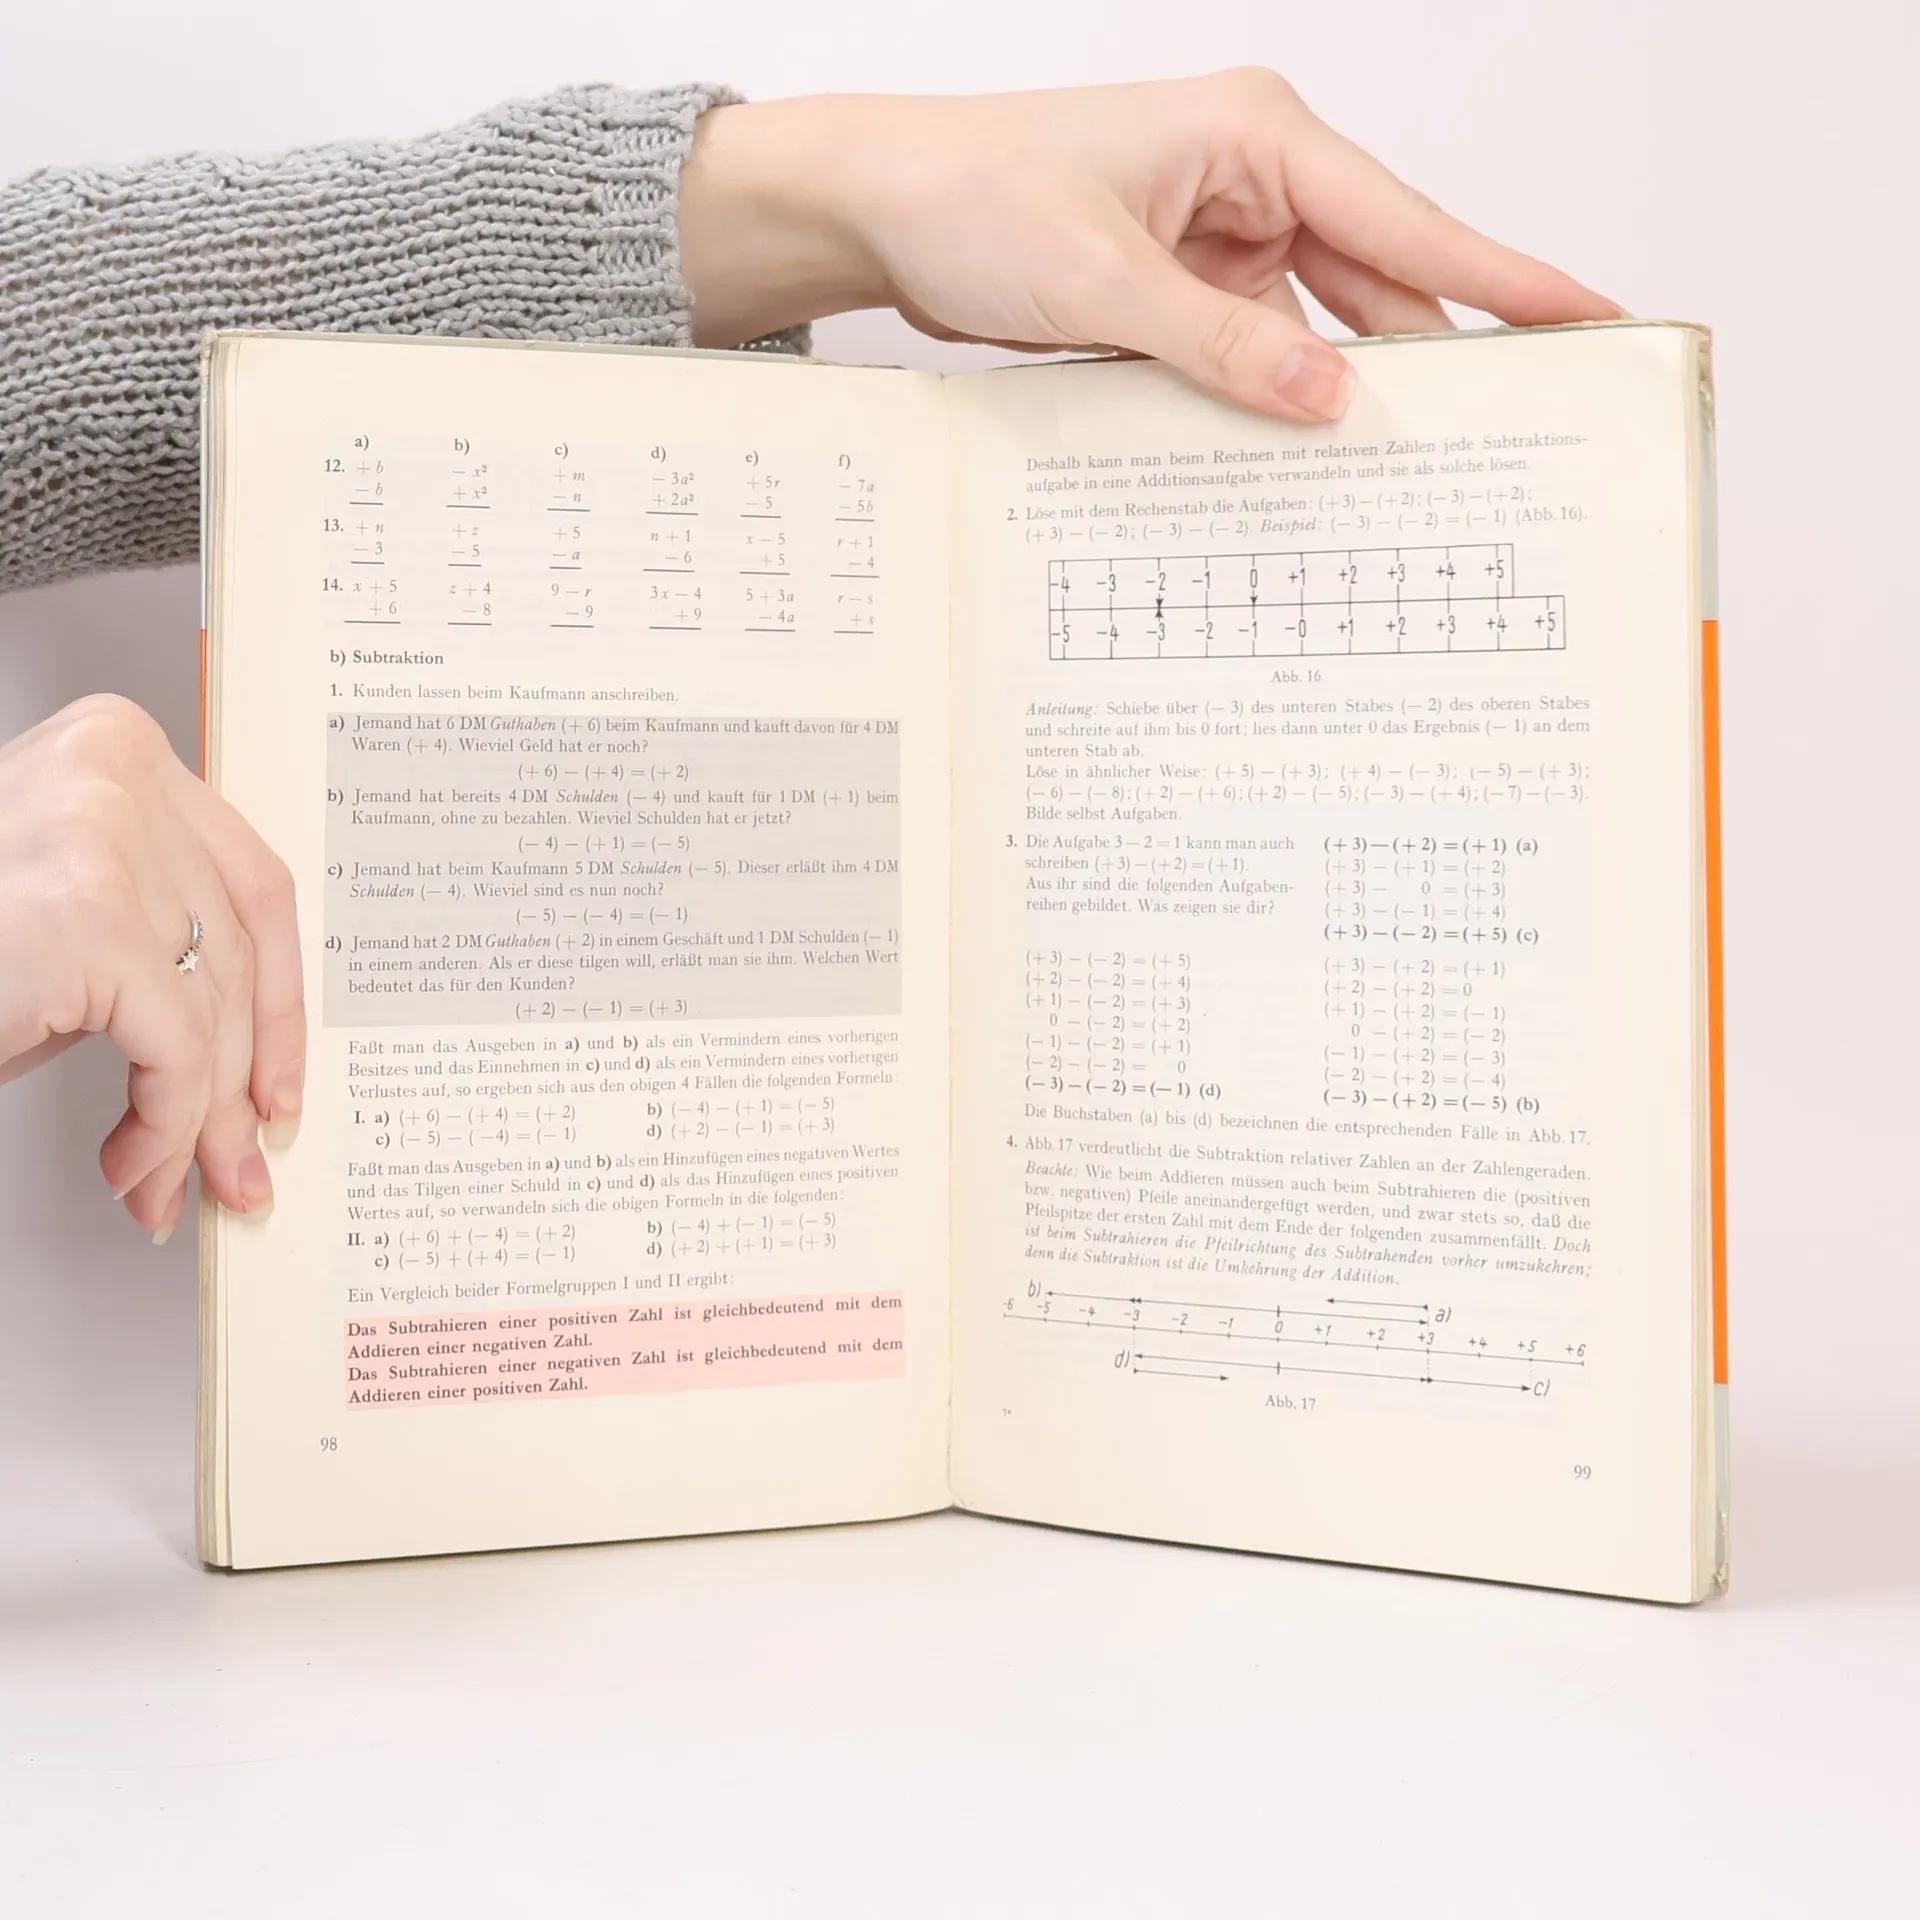 a) b) c) d) e) f)
12. + b − x² + m − 3a² + 5r − 7a
− b + x² − n + 2a² − 5 − 5b
13. + n + z + 5 n + 1 x − 5 r + 1
− 3 − 5 − a − 6 + 5 − 4
14. x + 5 z + 4 9 − r 3x − 4 5 + 3a r − s
+ 6 − 8 − 9 + 9 − 4a + s
b) Subtraktion
1. Kunden lassen beim Kaufmann anschreiben.
a) Jemand hat 6 DM Guthaben (+ 6) beim Kaufmann und kauft davon für 4 DM
Waren (+ 4). Wieviel Geld hat er noch?
(+ 6) − (+ 4) = (+ 2)
b) Jemand hat bereits 4 DM Schulden (− 4) und kauft für 1 DM (+ 1) beim
Kaufmann, ohne zu bezahlen. Wieviel Schulden hat er jetzt?
(− 4) − (+ 1) = (− 5)
c) Jemand hat beim Kaufmann 5 DM Schulden (− 5). Dieser erläßt ihm 4 DM
Schulden (− 4). Wieviel sind es nun noch?
(− 5) − (− 4) = (− 1)
d) Jemand hat 2 DM Guthaben (+ 2) in einem Geschäft und 1 DM Schulden (− 1)
in einem anderen. Als er diese tilgen will, erläßt man sie ihm. Welchen Wert
bedeutet das für den Kunden?
(+ 2) − (− 1) = (+ 3)
Faßt man das Ausgeben in a) und b) als ein Vermindern eines vorherigen
Besitzes und das Einnehmen in c) und d) als ein Vermindern eines vorherigen
Verlustes auf, so ergeben sich aus den obigen 4 Fällen die folgenden Formeln:
I. a) (+ 6) − (+ 4) = (+ 2) b) (− 4) − (+ 1) = (− 5)
c) (− 5) − (−4) = (− 1) d) (+ 2) − (− 1) = (+ 3)
Faßt man das Ausgeben in a) und b) als ein Hinzufügen eines negativen Wertes
und das Tilgen einer Schuld in c) und d) als das Hinzufügen eines positiven
Wertes auf, so verwandeln sich die obigen Formeln in die folgenden:
II. a) (+ 6) + (− 4) = (+ 2) b) (− 4) + (− 1) = (− 5)
c) (− 5) + (+ 4) = (− 1) d) (+ 2) + (+ 1) = (+ 3)
Ein Vergleich beider Formelgruppen I und II ergibt:
Das Subtrahieren einer positiven Zahl ist gleichbedeutend mit dem
Addieren einer negativen Zahl.
Das Subtrahieren einer negativen Zahl ist gleichbedeutend mit dem
Addieren einer positiven Zahl.
98
Deshalb kann man beim Rechnen mit relativen Zahlen jede Subtraktions-
aufgabe in eine Additionsaufgabe verwandeln und sie als solche lösen.
2. Löse mit dem Rechenstab die Aufgaben: (+ 3) − (+ 2); (− 3) − (+ 2);
(+ 3) − (− 2); (− 3) − (− 2). Beispiel: (− 3) − (− 2) = (− 1) (Abb. 16).
−4 −3 −2 −1 0 +1 +2 +3 +4 +5
−5 −4 −3 −2 −1 −0 +1 +2 +3 +4 +5
Abb. 16
Anleitung: Schiebe über (− 3) des unteren Stabes (− 2) des oberen Stabes
und schreite auf ihm bis 0 fort; lies dann unter 0 das Ergebnis (− 1) an dem
unteren Stab ab.
Löse in ähnlicher Weise: (+ 5) − (+ 3); (+ 4) − (− 3); (− 5) − (+ 3);
(− 6) − (− 8); (+ 2) − (+ 6); (+ 2) − (− 5); (− 3) − (+ 4); (− 7) − (− 3).
Bilde selbst Aufgaben.
3. Die Aufgabe 3 − 2 = 1 kann man auch
schreiben (+ 3) − (+ 2) = (+ 1).
Aus ihr sind die folgenden Aufgaben-
reihen gebildet. Was zeigen sie dir?
(+ 3) − (+ 2) = (+ 1) (a)
(+ 3) − (+ 1) = (+ 2)
(+ 3) − 0 = (+ 3)
(+ 3) − (− 1) = (+ 4)
(+ 3) − (− 2) = (+ 5) (c)
(+ 3) − (− 2) = (+ 5)
(+ 2) − (− 2) = (+ 4)
(+ 1) − (− 2) = (+ 3)
0 − (− 2) = (+ 2)
(− 1) − (− 2) = (+ 1)
(− 2) − (− 2) = 0
(− 3) − (− 2) = (− 1) (d)
(+ 3) − (+ 2) = (+ 1)
(+ 2) − (+ 2) = 0
(+ 1) − (+ 2) = (− 1)
0 − (+ 2) = (− 2)
(− 1) − (+ 2) = (− 3)
(− 2) − (+ 2) = (− 4)
(− 3) − (+ 2) = (− 5) (b)
Die Buchstaben (a) bis (d) bezeichnen die entsprechenden Fälle in Abb. 17.
4. Abb. 17 verdeutlicht die Subtraktion relativer Zahlen an der Zahlengeraden.
Beachte: Wie beim Addieren müssen auch beim Subtrahieren die (positiven
bzw. negativen) Pfeile aneinandergefügt werden, und zwar stets so, daß die
Pfeilspitze der ersten Zahl mit dem Ende der folgenden zusammenfällt. Doch
ist beim Subtrahieren die Pfeilrichtung des Subtrahenden vorher umzukehren;
denn die Subtraktion ist die Umkehrung der Addition.
b) a)
-6 -5 -4 -3 -2 -1 0 +1 +2 +3 +4 +5 +6
d) c)
Abb. 17
7*
99